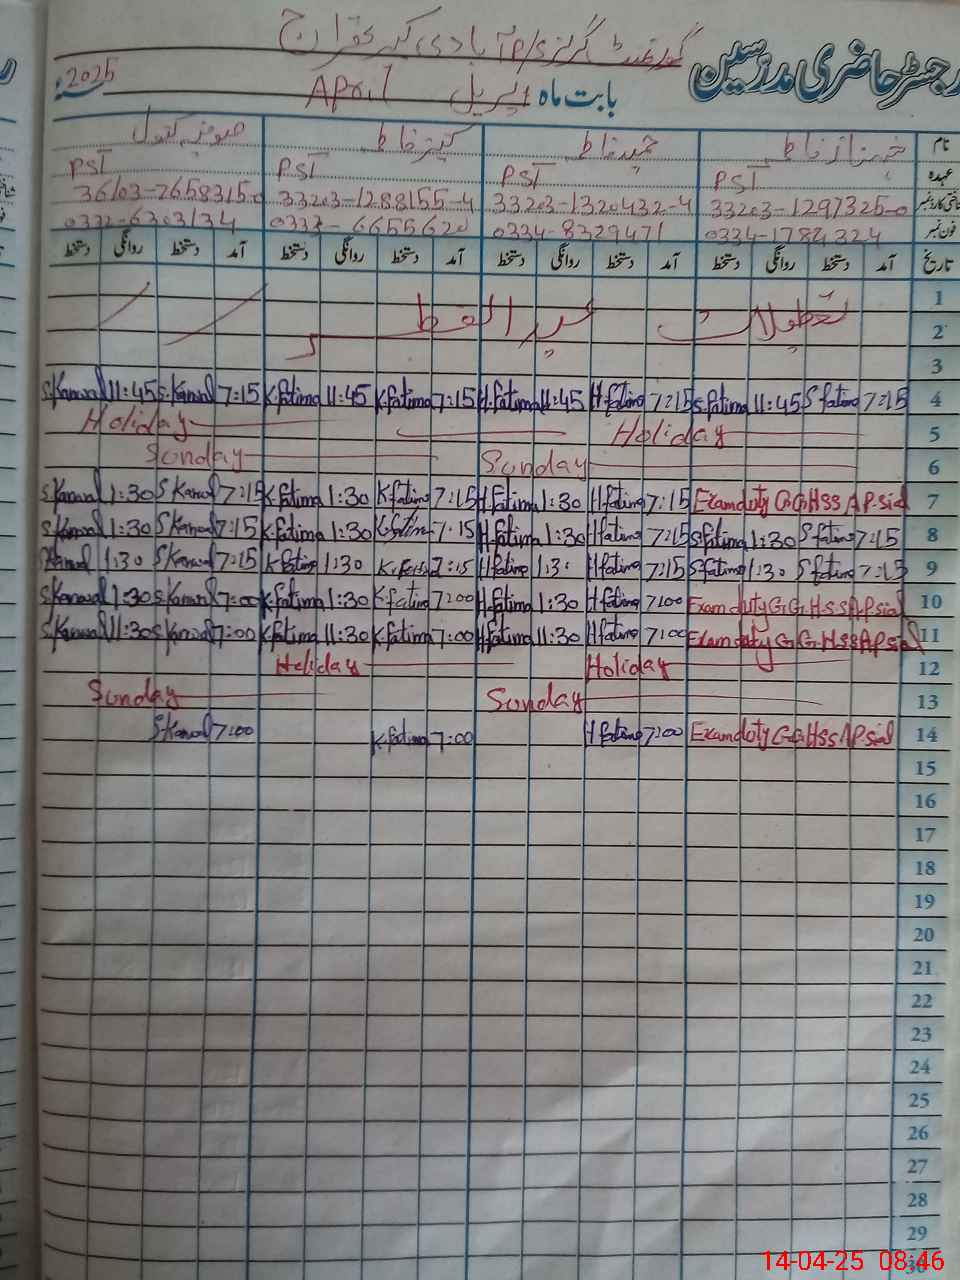 رجسٹر حاضری مدرسین
گورنمنٹ گرلز P/S آبادی
بابت ماہ اپریل April 2025ء
نام شہناز فاطمہ حمید فاطمہ کنیز فاطمہ کنول
عہدہ PST PST PST PST
33203-1297325-0 33203-1320432-4 33203-1288155-4 36103-2658315-0
فون نمبر 0334-1784324 0334-8329471 0333-6655620 0332-6303134
تاریخ آمد دستخط روانگی دستخط آمد دستخط روانگی دستخط آمد دستخط روانگی دستخط آمد دستخط روانگی دستخط
1
2 تعطیلات عید الفطر
3
S.Kanwal 11:45 S.Kanwal 7:15 K.fatima 11:45 K.fatima 7:15 H.fatima 11:45 H.fatima 7:15 S.fatima 11:45 S fatima 7:15 4
Holiday Holiday 5
Sunday Sunday 6
S.Kanwal 1:30 S Kanwal 7:15 K.fatima 1:30 K fatima 7:15 H.fatima 1:30 H fatima 7:15 Exam duty G.G.HSS A.P.sial 7
S.Kanwal 1:30 S Kanwal 7:15 K.fatima 1:30 K.fatima 7:15 H.fatima 1:30 H fatima 7:15 S.fatima 1:30 S fatima 7:15 8
S.Kanwal 1:30 S Kanwal 7:15 K.fatima 1:30 K.fatima 7:15 H.fatima 1:30 H fatima 7:15 S.fatima 1:30 S fatima 7:15 9
S.Kanwal 1:30 S.Kanwal 7:00 K.fatima 1:30 K fatima 7:00 H.fatima 1:30 H fatima 7:00 Exam duty G.G.HSS A P sial 10
S.Kanwal 11:30 S Kanwal 7:00 K.fatima 11:30 K fatima 7:00 H.fatima 11:30 H fatima 7:00 Exam duty G.G.HSS A P sial 11
Holiday Holiday 12
Sunday Sunday 13
S.Kanwal 7:00 K.fatima 7:00 H fatima 7:00 Exam duty G.G.HSS A P sial 14
15
16
17
18
19
20
21
22
23
24
25
26
27
28
29
30
14-04-25 08:46